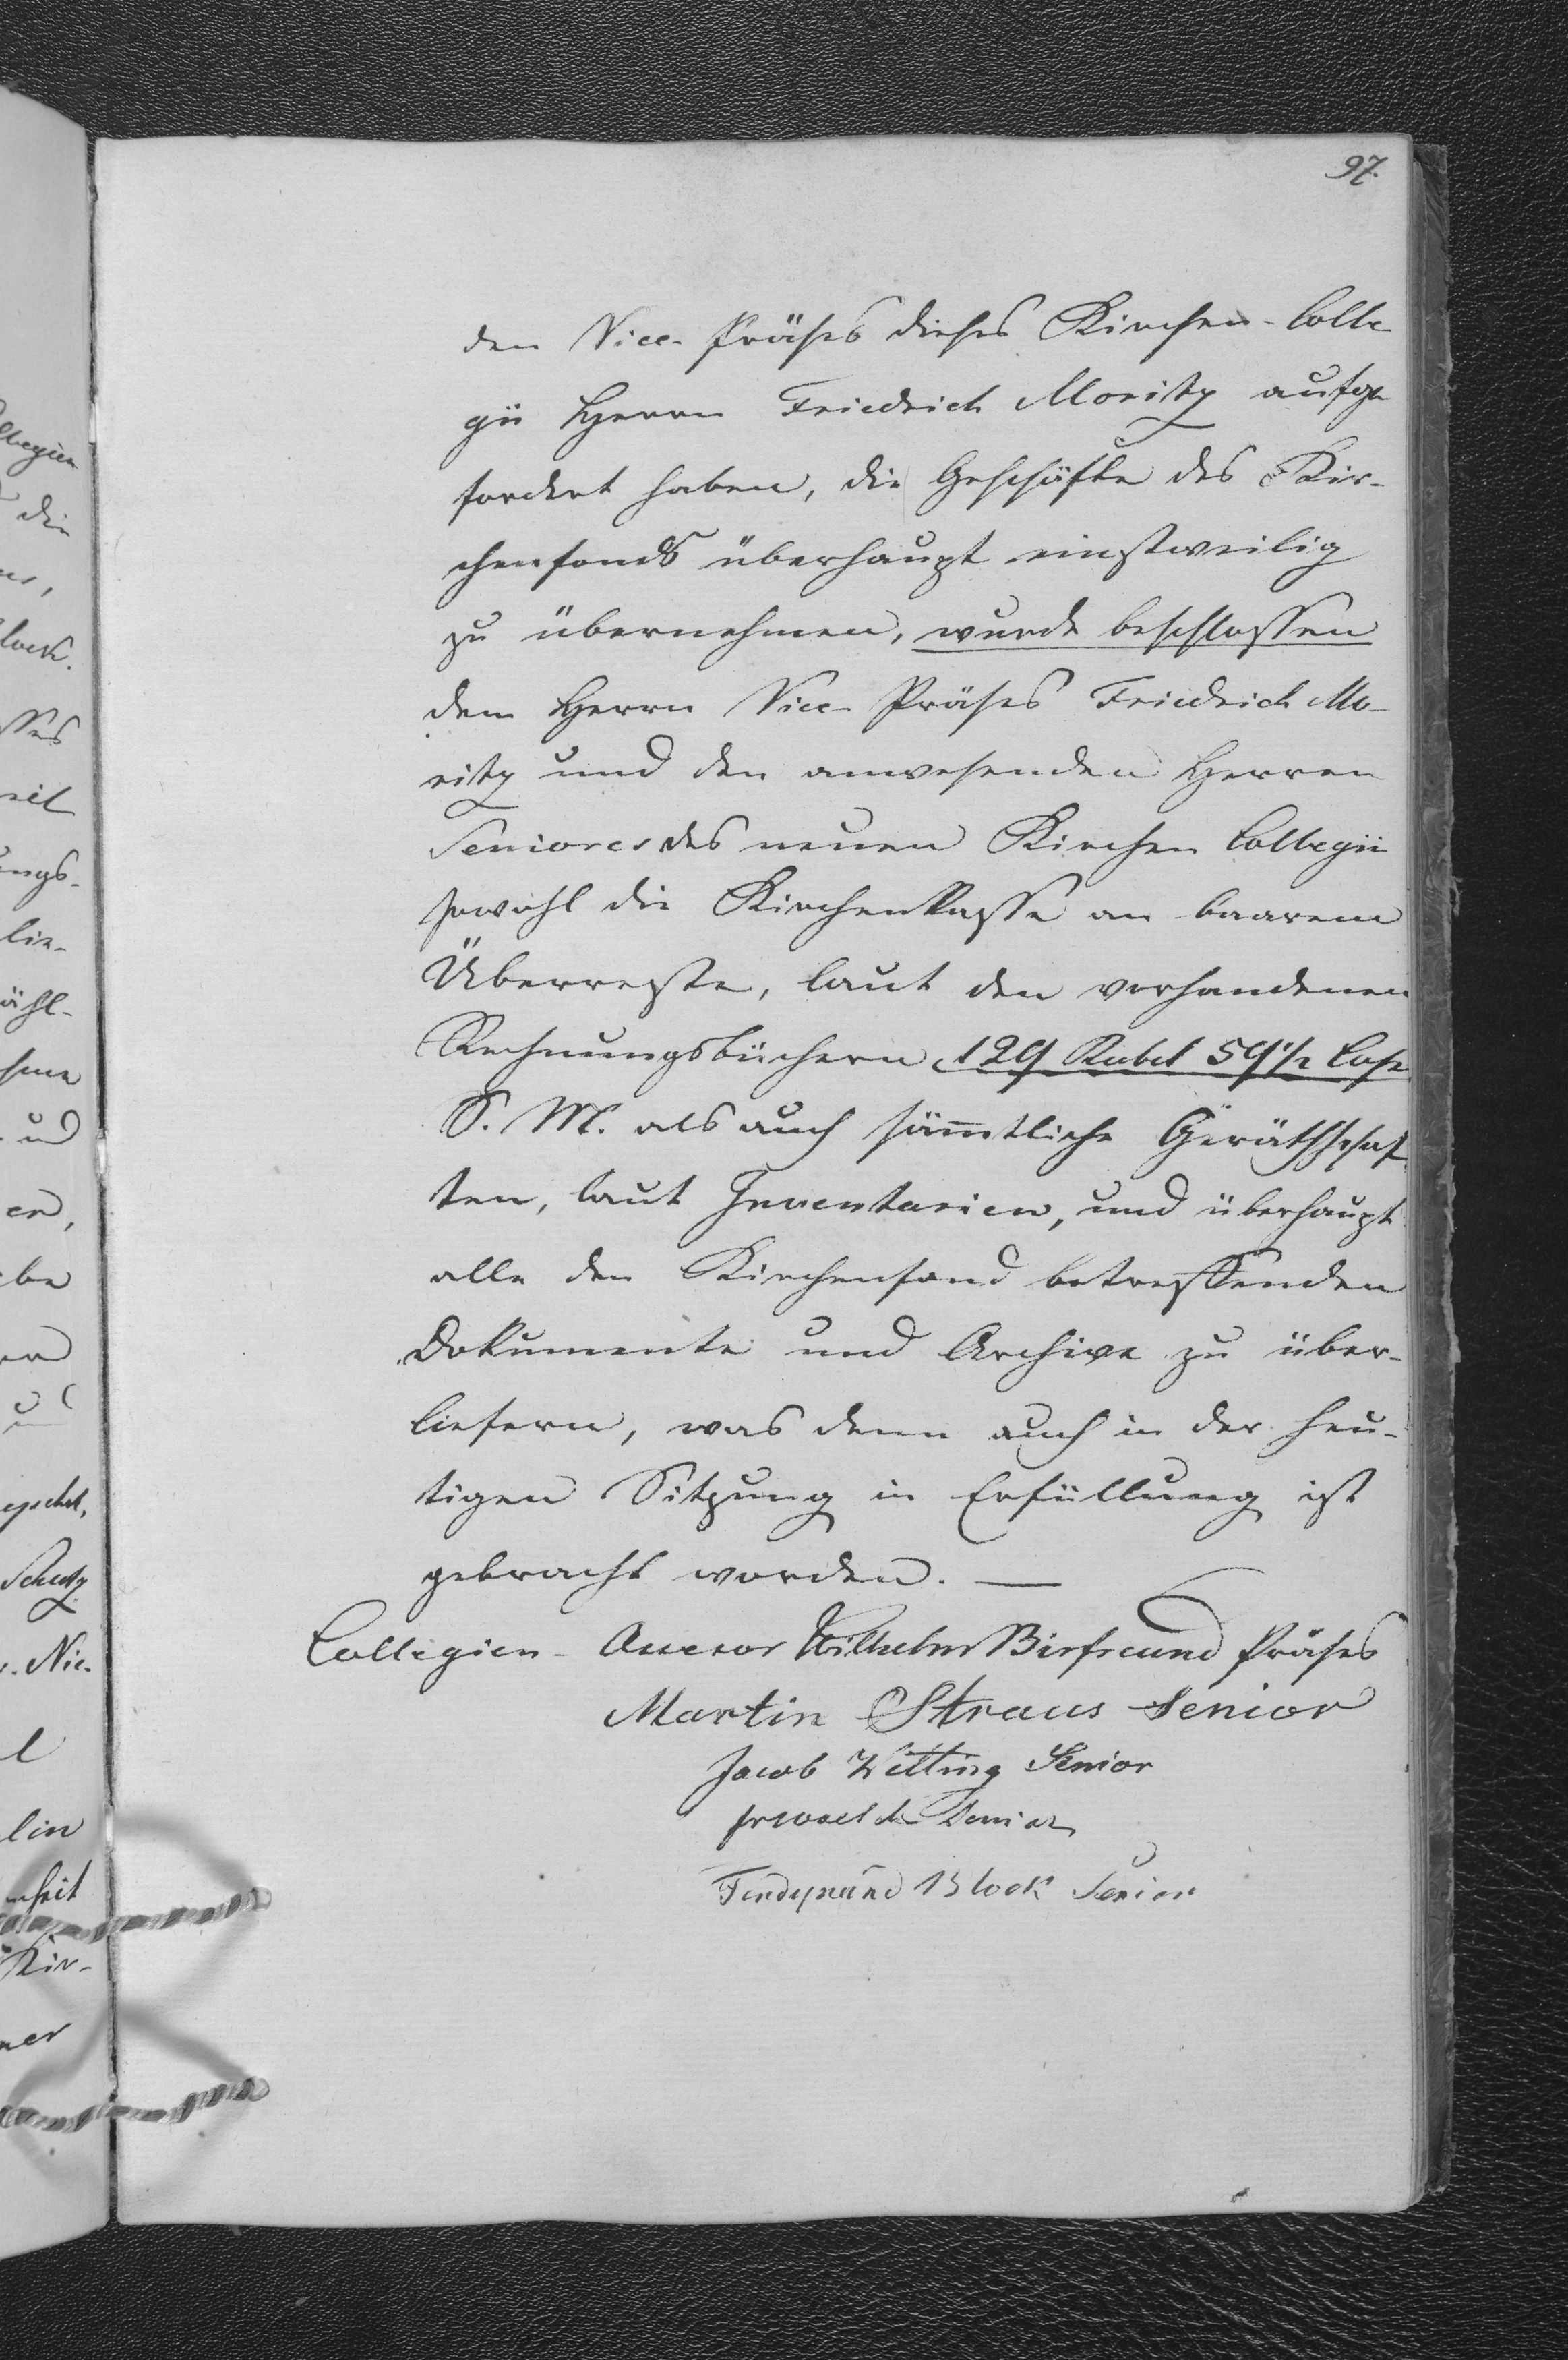 97.
den Vice-Präses dieses Kirchen-Colle-
gii Herrn Friedrich Moritz aufge-
fordert haben, die Geschäfte des Kir-
chenfonds überhaupt einstweilig
zu übernehmen, wurde beschlossen
dem Herrn Vice-Präses Friedrich Mo-
ritz und den anwesenden Herren
Seniores des neuen Kirchen Collegii
sowohl die Kirchenkasse an baarem
Überreste, laut den vorhandenen
Rechnungsbüchern 129 Rubel 59 1/2 Cop.
S. M. als auch sämtliche Geräthschaf-
ten, laut Inventarien, und überhaupt
alle den Kirchenfond betreffenden
Dokumente und Archive zu über-
liefern, was denn auch in der heu-
tigen Sitzung in Erfüllung ist
gebracht worden. —
Collegien-Assessor Wilhelm Birfreund Präses
Martin Straus Senior
Jacob Witting Senior
Senior
Ferdynand Block Senior